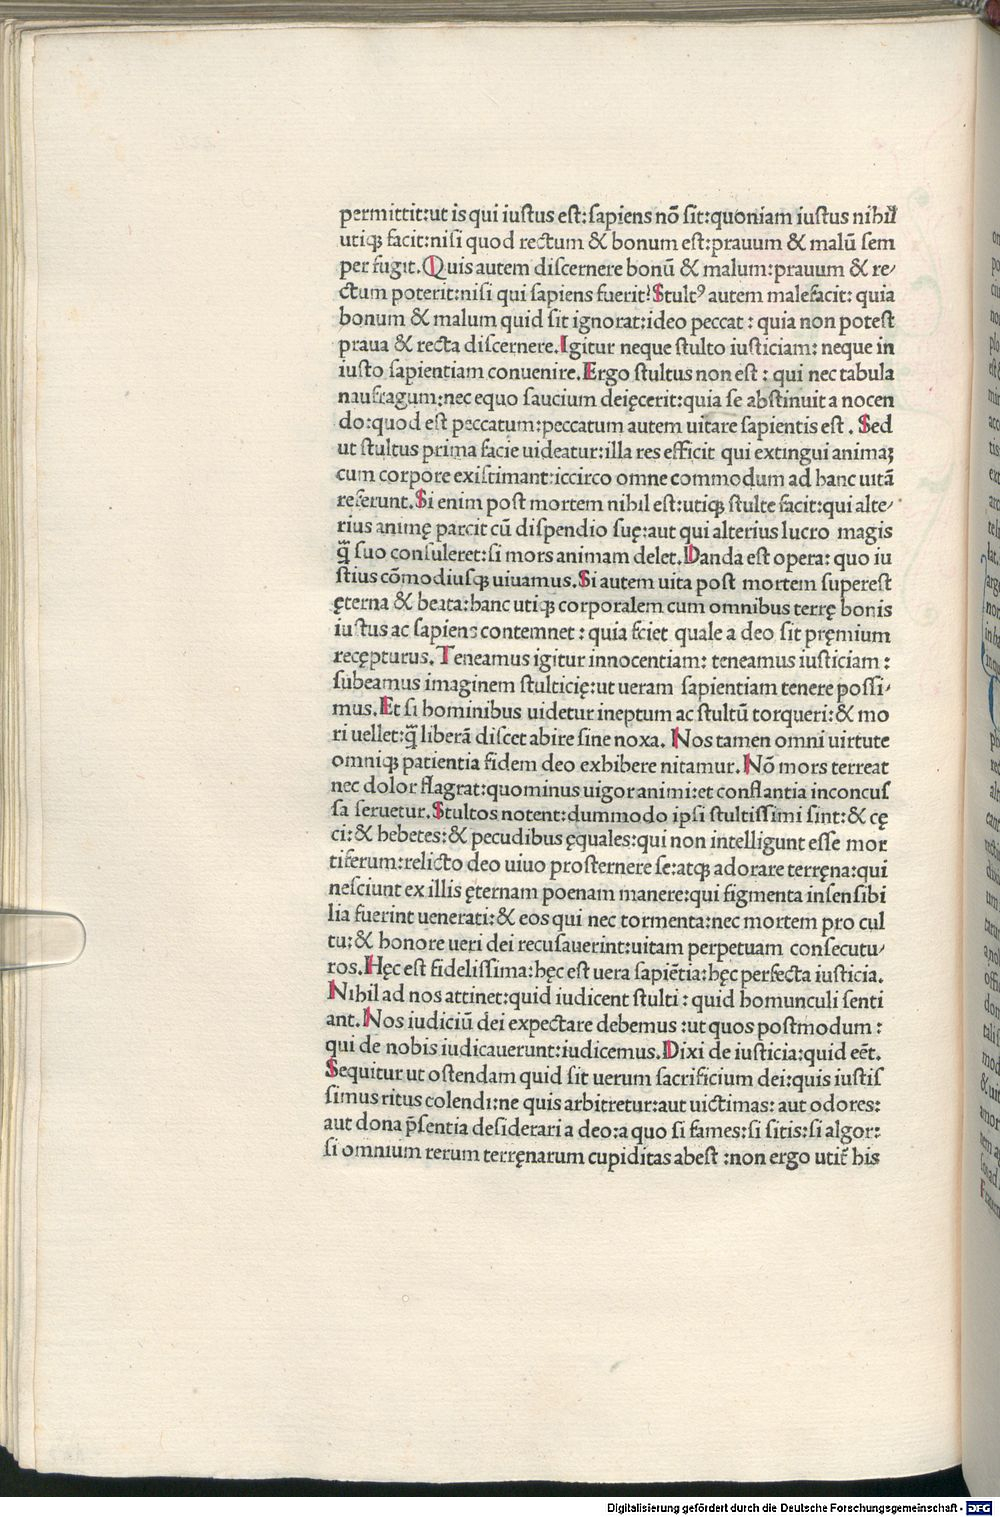 permittit:ut is qui iuſtus eſt:ſapiens nõ ſit:quoniam iuſtus nihil
utiqꝫ facit:niſi quod rectum & bonum eſt:prauum & malũ ſem
per fugit.Quis autem diſcernere bonũ & malum:prauum & re⸗
ctum poterit:niſi qui ſapiens fuerit?Stultꝰ autem malefacit: quia
bonum & malum quid ſit ignorat:ideo peccat : quia non poteſt
praua & recta diſcernere.Igitur neque ſtulto iuſticiam: neque in
iuſto ſapientiam conuenire.Ergo ſtultus non eſt : qui nec tabula
naufragum:nec equo ſaucium deięcerit:quia ſe abſtinuit a nocen
do:quod eſt peccatum:peccatum autem uitare ſapientis eſt . Sed
ut ſtultus prima facie uideatur:illa res efficit qui extingui animaꝫ
cum corpore exiſtimant:iccirco omne commodum ad hanc uitã
referunt.Si enim poſt mortem nihil eſt:utiqꝫ ſtulte facit:qui alte⸗
rius animę parcit cũ diſpendio ſuę:aut qui alterius lucro magis
q̃ ſuo conſuleret:ſi mors animam delet.Danda eſt opera: quo iu
ſtius cõmodiuſqꝫ uiuamus.Si autem uita poſt mortem ſupereſt
ęterna & beata:hanc utiqꝫ corporalem cum omnibus terrę bonis
iuſtus ac ſapiens contemnet : quia ſciet quale a deo ſit pręmium
recępturus. Teneamus igitur innocentiam: teneamus iuſticiam :
ſubeamus imaginem ſtulticię:ut ueram ſapientiam tenere poſſi⸗
mus.Et ſi hominibus uidetur ineptum ac ſtultũ torqueri:& mo
ri uellet:q̃ liberã diſcet abire ſine noxa. Nos tamen omni uirtute
omniqꝫ patientia fidem deo exhibere nitamur.Nõ mors terreat
nec dolor flagrat:quominus uigor animi:et conſtantia inconcuſ
ſa ſeruetur.Stultos notent:dummodo ipſi ſtultiſſimi ſint:& cę
ci:& hebetes:& pecudibus ęquales:qui non intelligunt eſſe mor
tiferum:relicto deo uiuo proſternere ſe:atqꝫ adorare terręna:qui
neſciunt ex illis ęternam poenam manere:qui figmenta inſenſibi
lia fuerint uenerati:& eos qui nec tormenta:nec mortem pro cul
tu:& honore ueri dei recuſauerint:uitam perpetuam conſecutu⸗
ros.Hęc eſt fideliſſima:hęc eſt uera ſapiẽtia:hęc perfecta iuſticia.
Nihil ad nos attinet:quid iudicent ſtulti : quid homunculi ſenti
ant.Nos iudiciũ dei expectare debemus :ut quos poſtmodum :
qui de nobis iudicauerunt:iudicemus.Dixi de iuſticia:quid eẽt.
Sequitur ut oſtendam quid ſit uerum ſacrificium dei:quis iuſtiſ
ſimus ritus colendi:ne quis arbitretur:aut uictimas: aut odores:
aut dona p̃ſentia deſiderari a deo:a quo ſi fames:ſi ſitis:ſi algor:
ſi omnium rerum terręnarum cupiditas abeſt :non ergo utit̃ his
Digitalisierung gefördert durch die Deutsche Forschungsgemeinschaft - DFG